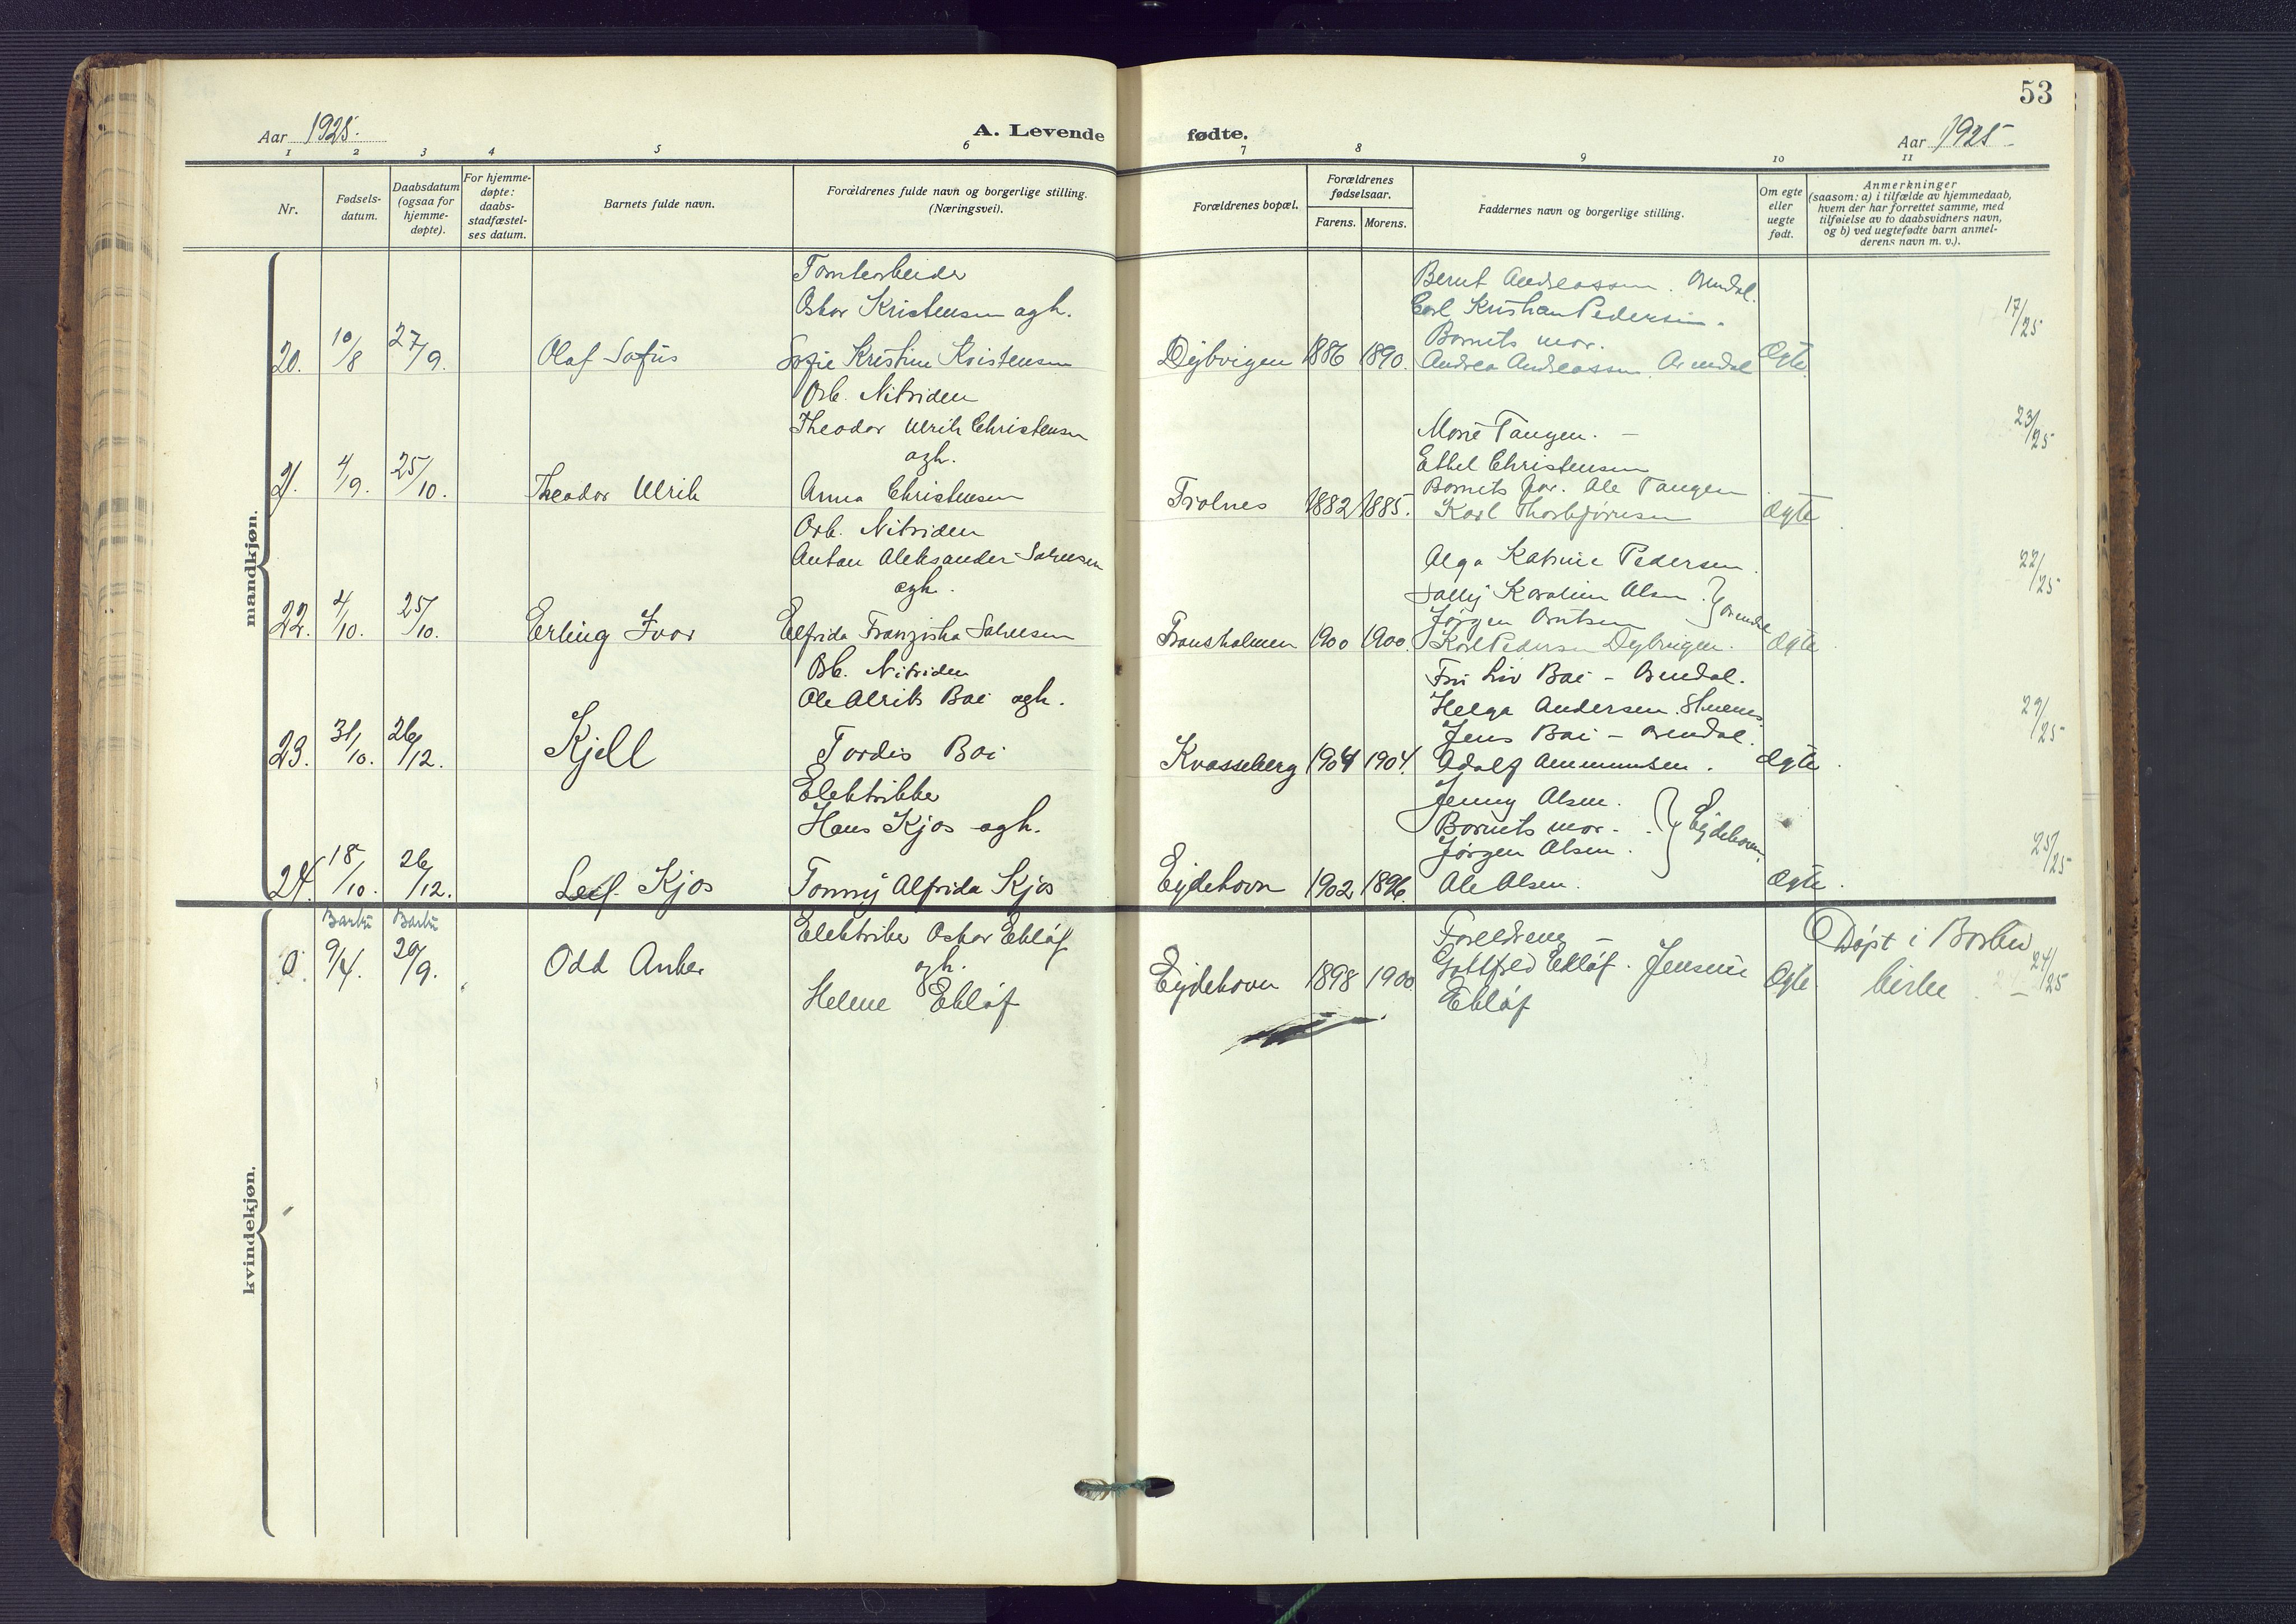 53
Aar 1925.
A. Levende fødte.
Aar 1925
1 2 3 4 5 6 7 8 9 10 11
Nr.
Fødsels-
datum.
Daabsdatum
(ogsaa for
hjemme-
døpte).
For hjemme-
døpte:
daabs-
stadfæstel-
ses datum.
Barnets fulde navn.
Forældrenes fulde navn og borgerlige stilling.
(Næringsvei).
Forældrenes bopæl.
Forældrenes
fødselsaar.
Farens. Morens.
Faddernes navn og borgerlige stilling.
Om egte
eller
uegte
født.
Anmerkninger
(saasom: a) i tilfælde av hjemmedaab,
hvem der har forrettet samme, med
tilføielse av to daabsvidners navn,
og b) ved uegtefødte barn anmel-
derens navn m. v.).
mandkjøn.
20. 10/8 27/9. Olaf Sofus
Tomtearbeider
Oskar Kristensen ogh.
Sofie Kristine Kristensen
Dybvigen 1886 1890.
Bernt Andreassen. Arendal.
Carl Kristian Pedersen.
Barnets mor.
Andrea Andreassen. Arendal
Egte.
17/25
21. 4/9. 25/10. Theodor Ulrik
Arb. Nitriden
Theodor Ulrik Christensen
ogh.
Anna Christensen
Trolnes 1882 1885.
Marie Tangen.
Ethel Christensen
Barnets far. Ole Tangen
Karl Thorbjørnsen
Egte
23/25
22. 4/10. 25/10. Erling Ivar
Arb. Nitriden
Anton Aleksander Salvesen
ogh.
Elfrida Franziska Salvesen
Fransholmen 1900 1900.
Olga Katrine Pedersen.
Sally Karoline Olsen.
Jørgen Arntsen
Arendal
Karl Pedersen Dybvigen.
Egte
22/25
23. 31/10. 26/12. Kjell
Arb. Nitriden
Ole Alrik Boi ogh.
Tordis Boi
Kvasseberg 1904 1904.
Fru Liv Boi - Arendal.
Helga Andersen.
Jens Boi - Arendal.
Adolf Ammundsen.
Egte
29/25
24. 18/10. 26/12. Leif Kjos
Elektriker
Hans Kjos ogh.
Tonny Alfrida Kjos
Eydehavn 1902 1896.
Jenny Olsen.
Barnets mor.
Jørgen Olsen.
Eydehavn.
Ole Olsen.
Egte.
25/25
kvindekjøn.
Barbu Barbu
0. 9/4. 20/9. Odd Anker
Elektriker Oskar Ekløf
ogh.
Helene Ekløf
Eydehavn 1898 1900
Foreldrene -
Gottfred Ekløf. Jensine
Ekløf
Egte
Døpt i Barbu
kirke.
24/25